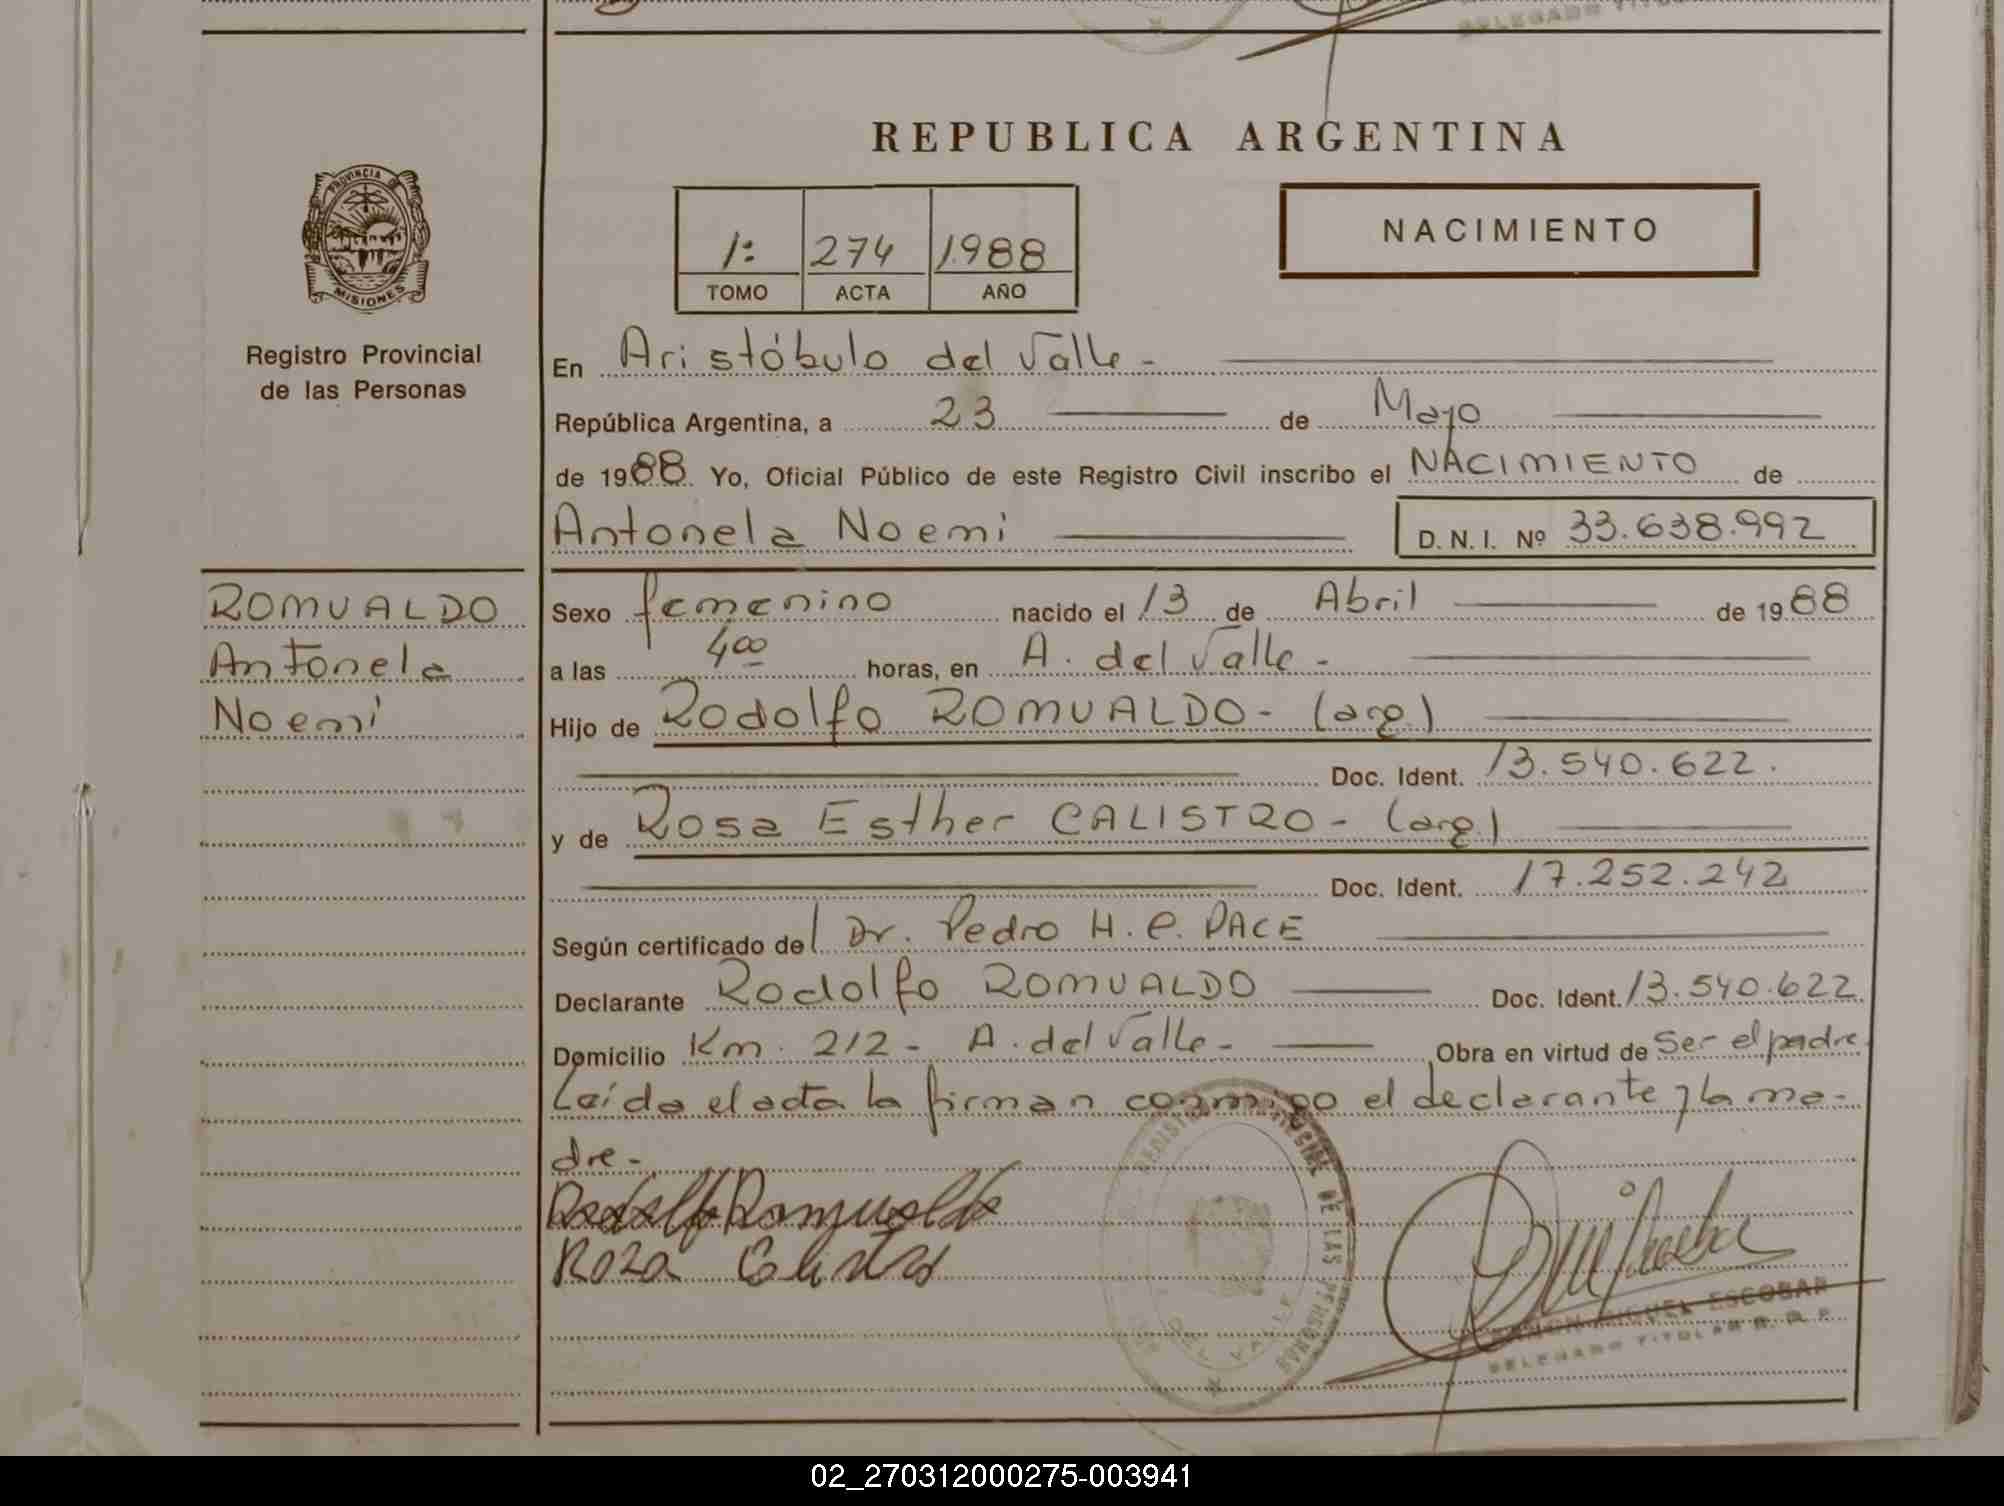 REPUBLICA ARGENTINA
PROVINCIA DE
MISIONES
Registro Provincial
de las Personas
1: 274 1.988
TOMO ACTA AÑO
NACIMIENTO
En Aristóbulo del Valle -
República Argentina, a 23 de Mayo
de 1988. Yo, Oficial Público de este Registro Civil inscribo el NACIMIENTO de
Antonela Noemi D. N. I. Nº 33.638.992
ROMUALDO
Antonela
Noemi
Sexo femenino nacido el 13 de Abril de 1988
a las 4 00 horas, en A. del Valle -
Hijo de Rodolfo ROMUALDO - (arg.)
Doc. Ident. 13.540.622.
y de Rosa Esther CALISTRO - (arg.)
Doc. Ident. 17.252.242
Según certificado del Dr. Pedro H. C. PACE
Declarante Rodolfo ROMUALDO Doc. Ident. 13.540.622
Domicilio Km. 212 - A. del Valle - Obra en virtud de Ser el padre.
Leída el acta la firman conmigo el declarante y la ma-
dre -
Rodolfo Romualdo
Roza Calistro
REGISTRO PROVINCIAL DE LAS PERSONAS
DEL VALLE
RAMON MIGUEL ESCOBAR
DELEGADO TITULAR R. P. P.
02_270312000275-003941